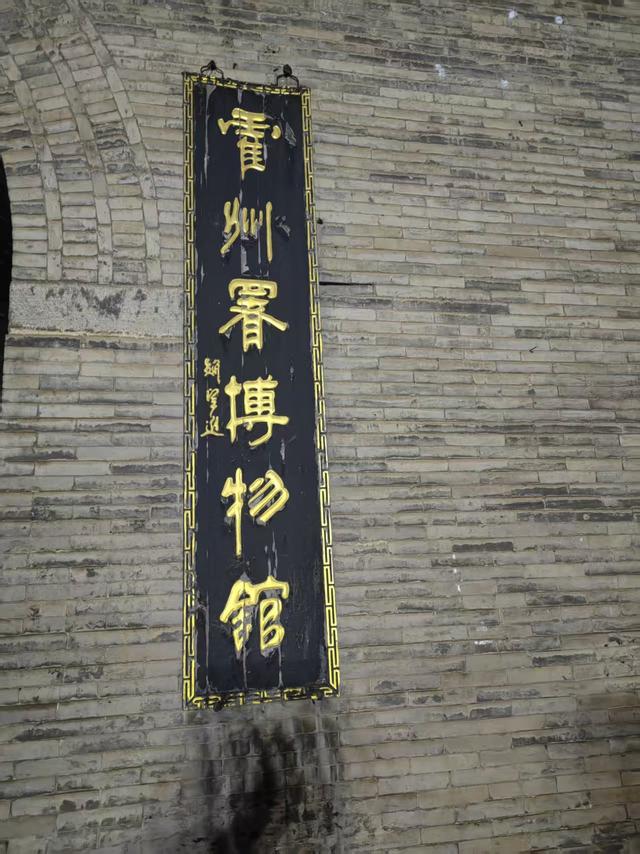 霍州署博物館